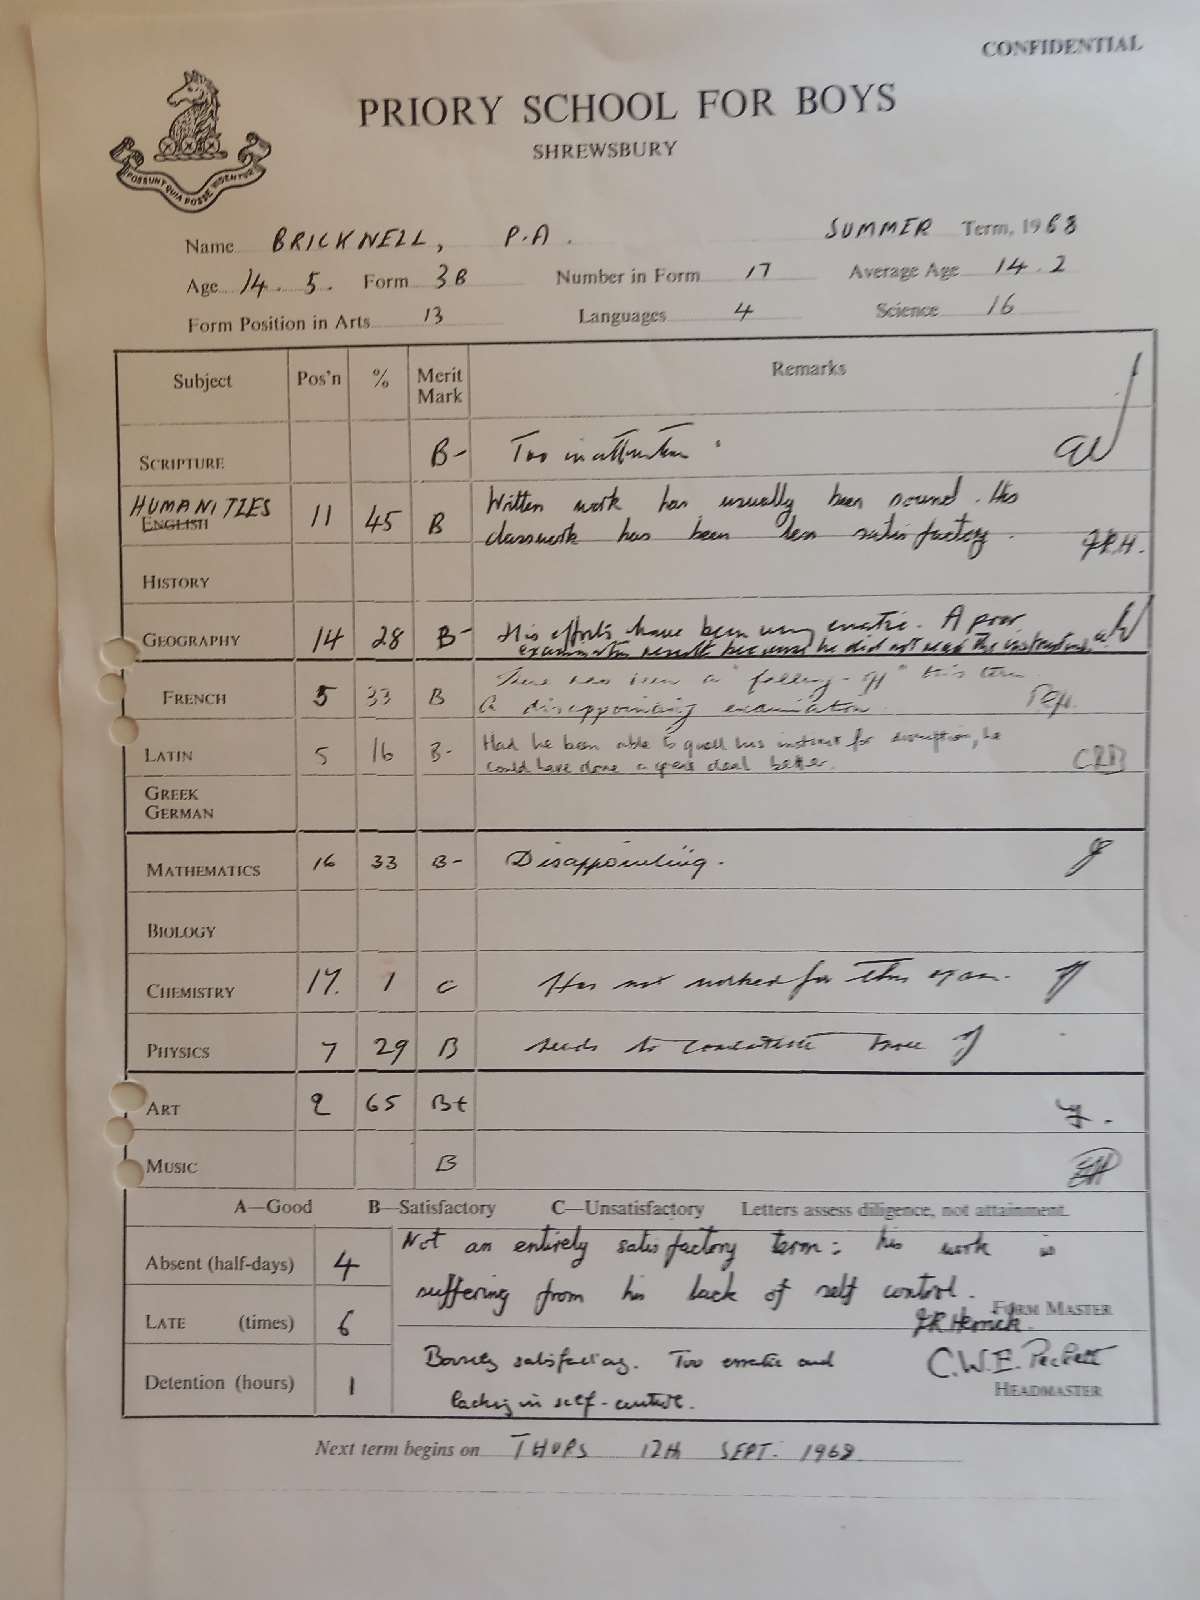 CONFIDENTIAL
PRIORY SCHOOL FOR BOYS
SHREWSBURY
POSSUNT QUIA POSSE VIDENTUR
Name BRICKNELL, P.A. SUMMER Term, 1968
Age 14.5. Form 3B Number in Form 17 Average Age 14.2
Form Position in Arts 13 Languages 4 Science 16
Subject Pos'n % Merit Mark Remarks
SCRIPTURE B- Too inattentive.
HUMANITIES Written work has usually been sound. His
ENGLISH 11 45 B classwork has been less satisfactory. J.R.H.
HISTORY
GEOGRAPHY 14 28 B- His efforts have been very erratic. A poor
examination result because he did not read the instructions.
FRENCH 5 33 B There has been a "falling-off" this term.
A disappointing examination.
LATIN 5 16 B- Had he been able to quell his instinct for disruption, he
could have done a great deal better. CRB
GREEK
GERMAN
MATHEMATICS 16 33 B- Disappointing.
BIOLOGY
CHEMISTRY 17. 1 C Has not worked for this exam.
PHYSICS 7 29 B Needs to concentrate more
ART 2 65 B+
MUSIC B
A—Good B—Satisfactory C—Unsatisfactory Letters assess diligence, not attainment.
Absent (half-days) 4 Not an entirely satisfactory term: his work is
suffering from his lack of self control.
FORM MASTER
LATE (times) 6 J.R. Herrick.
Barely satisfactory. Too erratic and C.W.E. Peckett
Detention (hours) 1 lacking in self-control. HEADMASTER
Next term begins on THURS 12TH SEPT. 1968